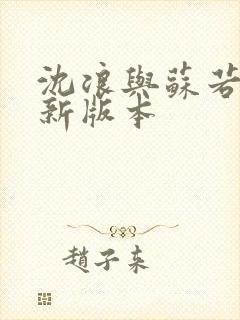 沈浪與蘇若
新版本
趙子來